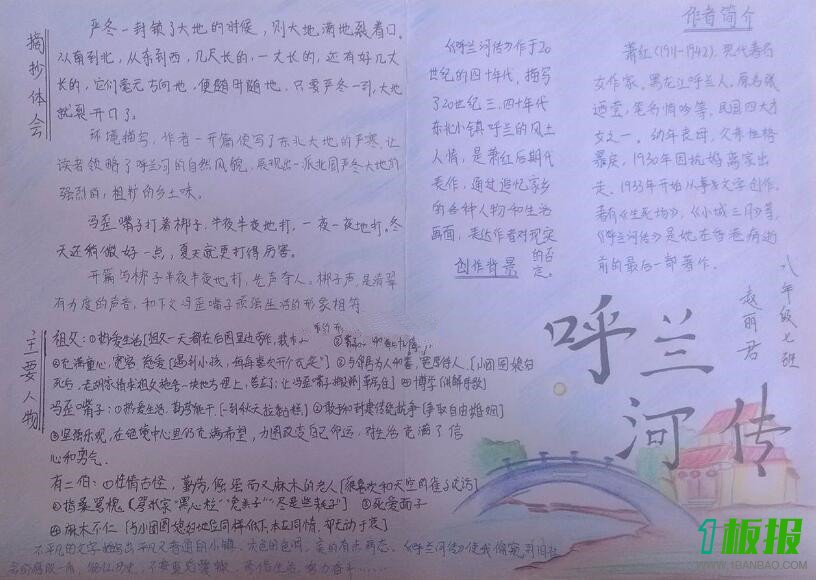 摘抄体会
严冬一封锁了大地的时候，则大地满地裂着口。
从南到北，从东到西，几尺长的，一丈长的，还有好几丈
长的，它们毫无方向地，便随时随地，只要严冬一到，大地
就裂开口了。
环境描写，作者一开篇便写了东北大地的严寒，让
读者领略了呼兰河的自然风貌，展现出一派北国严冬大地的
强烈的，粗犷的乡土味。
冯歪嘴子打着梆子，半夜半夜地打，一夜一夜地打。冬
天还稍微好一点，夏天就更打得厉害。
开篇写梆子半夜半夜地打，先声夺人。梆子声，是清翠
有力度的声音，和下文冯歪嘴子顽强生活的形象相符
主要人物
祖父：①热爱生活[祖父一天都在后园里边
②充满童心，宽容 慈爱[遇到小孩，每每喜欢开个玩笑]
[小团圆媳妇
④博学[讲解诗歌]
冯歪嘴子：①热爱生活，勤劳能干，[一到秋天拉黏糕]②敢于和封建传统抗争[争取自由婚姻]
③坚强乐观，在绝境中心里仍充满希望，力图改变自己命运，对生活充满了信
心和勇气.
有二伯：①性情古怪，勤劳，倔强而又麻木的老人[很喜欢和天空的雀子说话]
②指桑骂槐 “黑心粒”“兔羔子” ③死爱面子
④麻木不仁
《呼兰河传》作于20
世纪的四十年代，描写
了20世纪三、四十年代
东北小镇呼兰的风土
人情，是萧红后期代
表作，通过追忆家乡
的各种人物和生活
画面，表达作者对现实
的否定。
创作背景
作者简介
萧红（1911-1942），现代著名
女作家，黑龙江呼兰人，原名张
迺莹，笔名悄吟等，民国四大才
女之一。幼年丧母，父亲性格
暴戾，1930年因抗婚离家出
走，1933年开始从事文学创作。
著有《生死场》，《小城三月》等，
《呼兰河传》是她在香港病逝
前的最后一部著作。
八年级七班
赵丽君
呼兰
河传
1板报
WWW.1BANBAO.COM